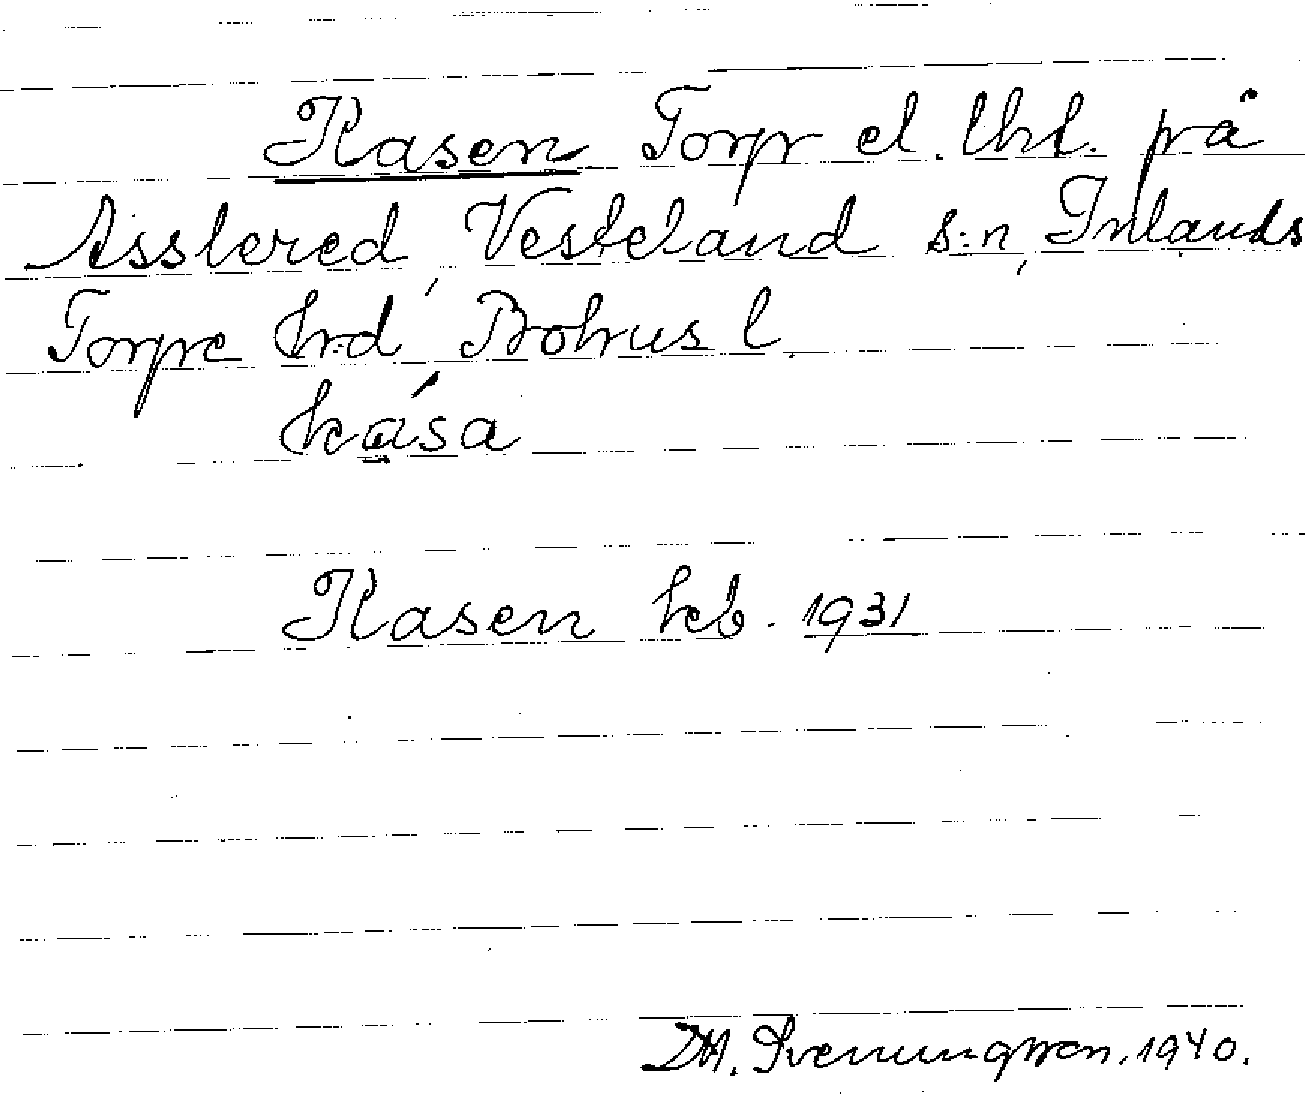 Kasen Torp el. lht. på
Asslered, Vesteland s:n, Inlands
Torpe h:d Bohus l.
kása
Kasen kb. 1931
DA. Svenungsson. 1940.